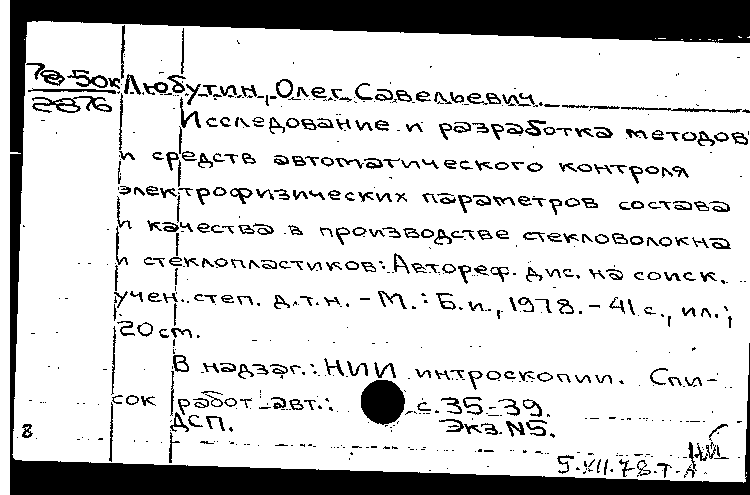 7а-50к Любутин, Олег Савельевич.
2876
Исследование и разработка методов
и средств автоматического контроля
электрофизических параметров состава
и качества в производстве стекловолокна
и стеклопластиков: Автореф. дис. на соиск.
учен. степ. д.т.н. - М.: Б.и., 1978. - 41 с., ил.;
20 cm.
В надзаг.: НИИ интроскопии. Спи-
сок работ авт.: с. 35-39.
ДСП. Экз. N5.
8
5.XII.78.Т-А